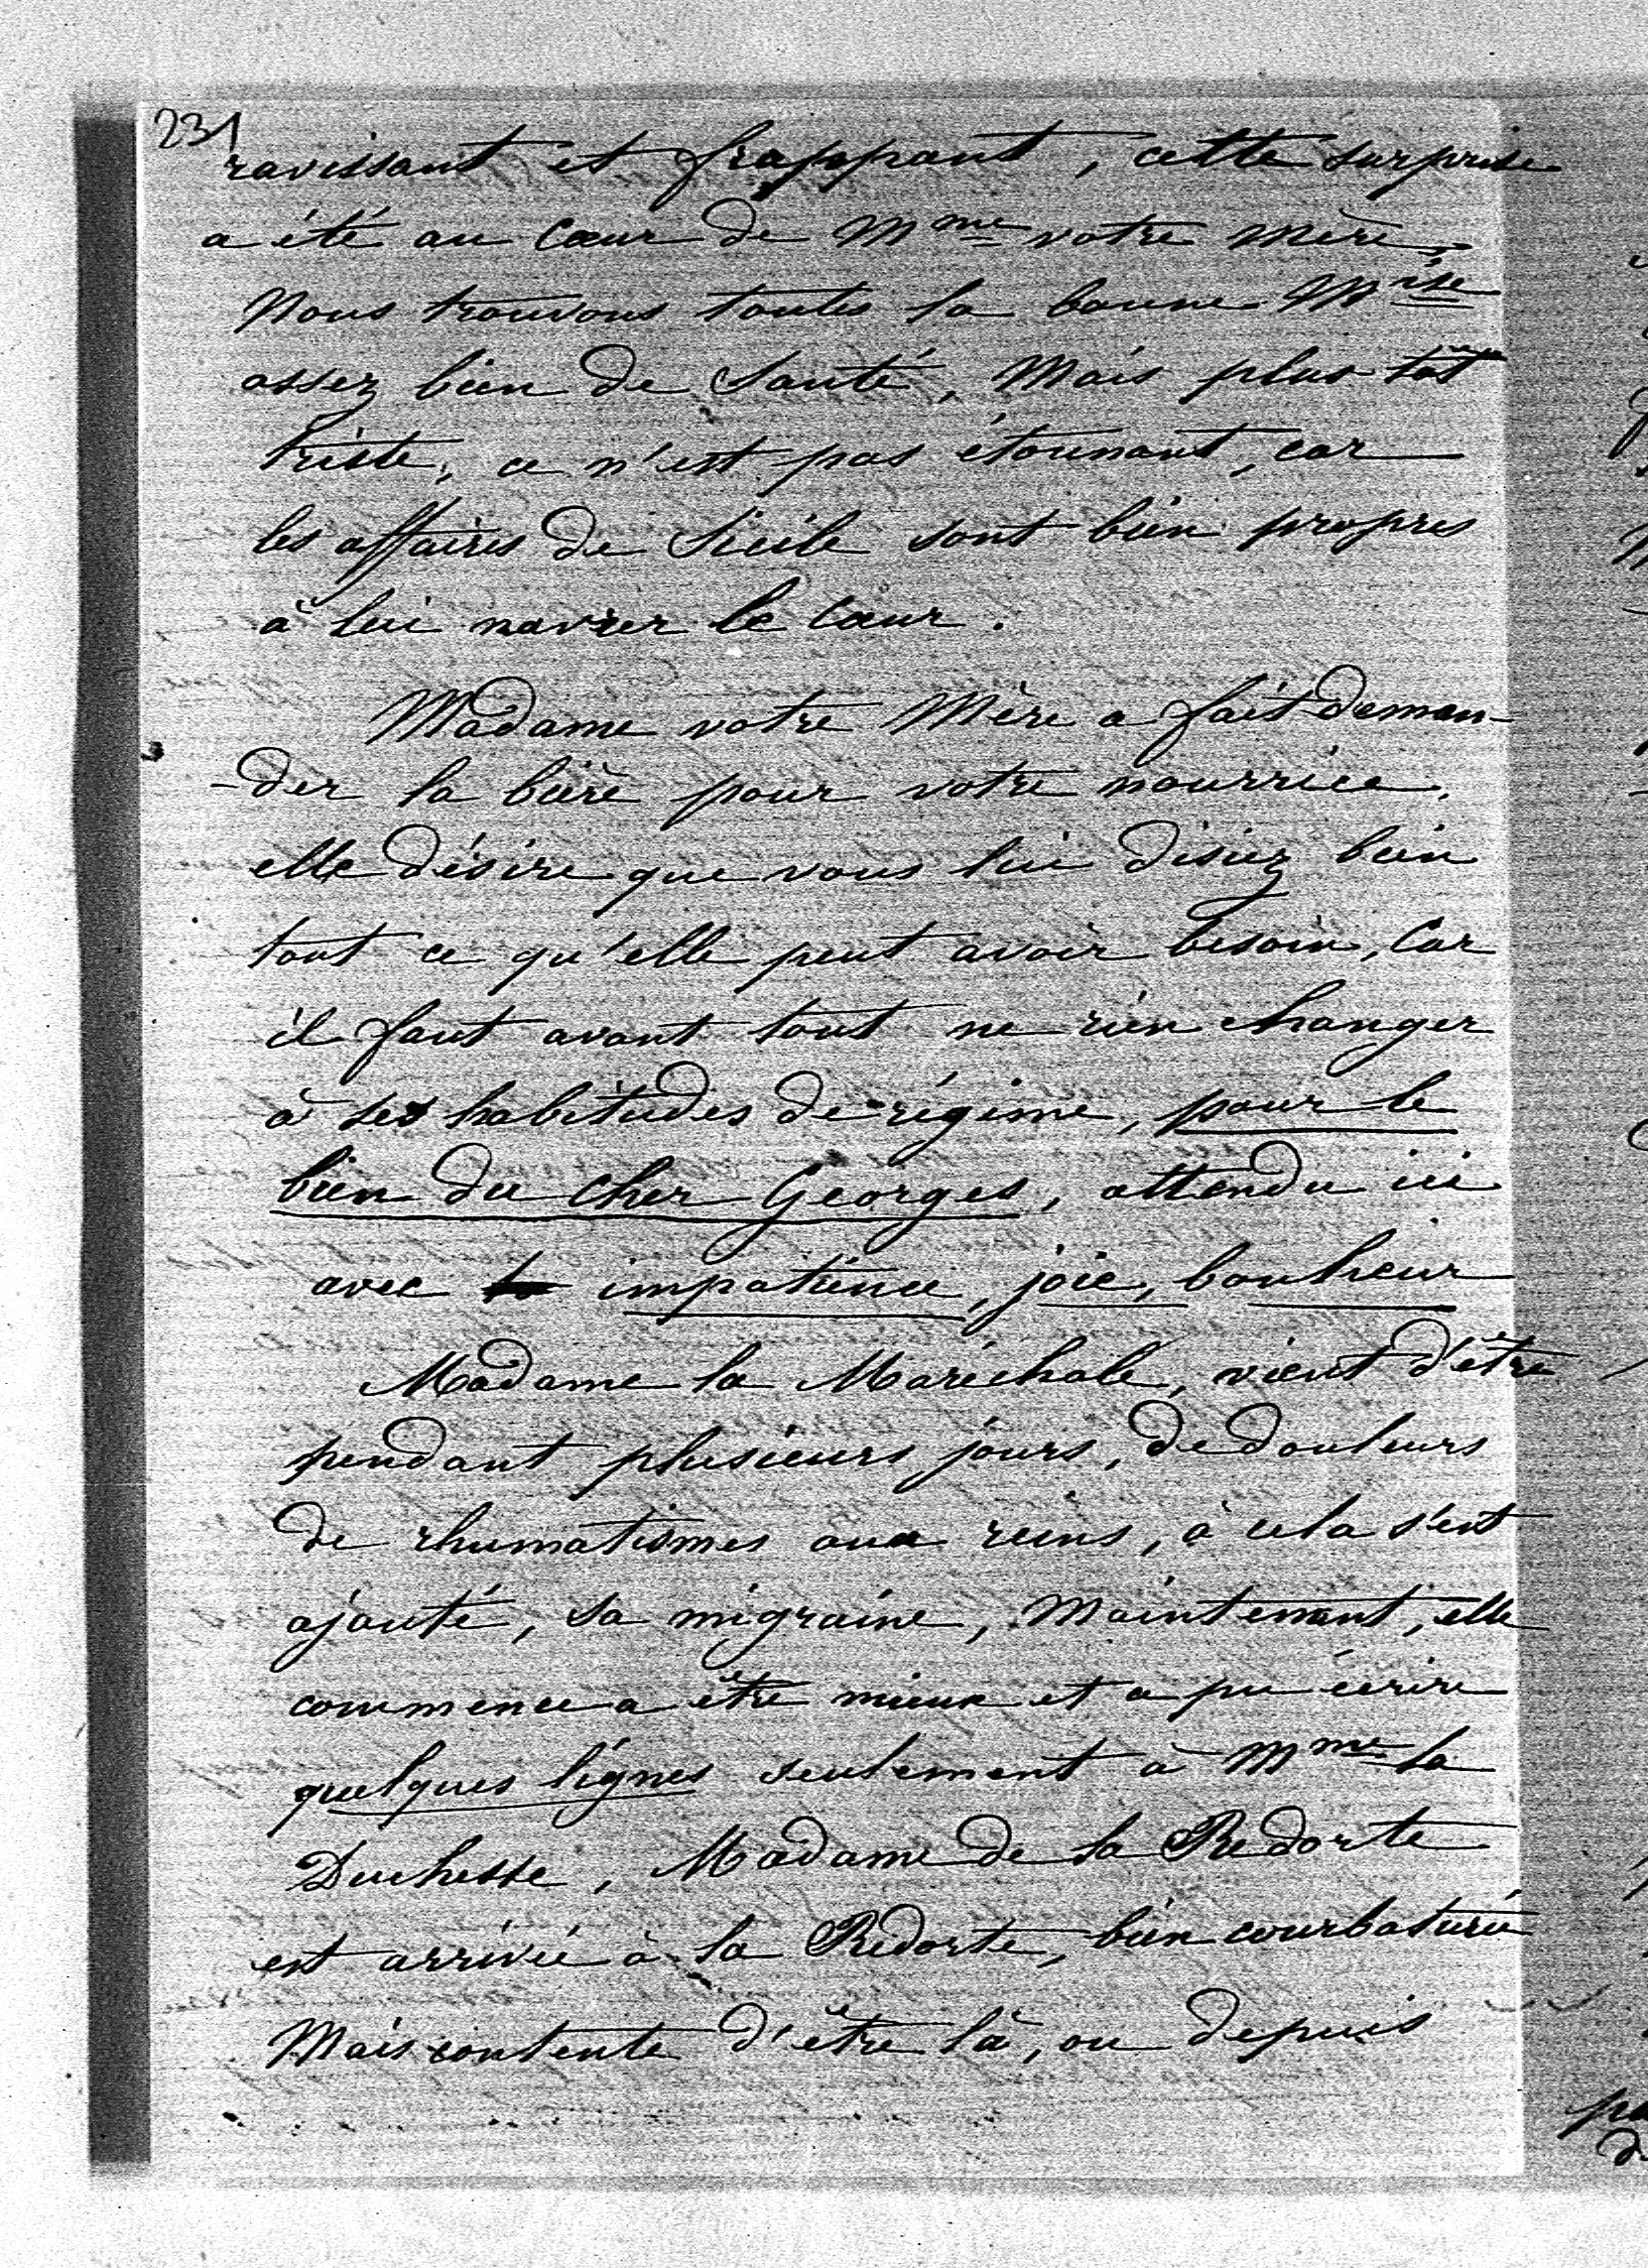 231
ravissant et frappant, cette surprise
a été au cœur de Mme votre mère,
Nous trouvons toutes la bonne Mise
assez bien de Santé, Mais plus tot
triste, ce n'est pas étonnant, car
les affaires de Sicile sont bien propres
à lui navrer le Cœur.
Madame votre Mère a fait deman-
-der la bière pour votre nourrice,
elle désire que vous lui disiez bien
tout ce qu'elle peut avoir besoin, Car
il faut avant tout ne rien changer
à ses habitudes de régime, pour le
bien du Cher Georges, attendu ici
avec impatience, joie, bonheur
Madame la Maréchale, vient d'être
pendant plusieurs jours, de douleurs
de rhumatismes aux reins, à cela s'est
ajouté, sa migraine, Maintenant, elle
commence a être mieux et a pu écrire
quelques lignes seulement à Mme la
Duchesse, Madame de la Redorte
est arrivée à la Redorte, bien courbaturée
Mais contente d'être là, ou depuis